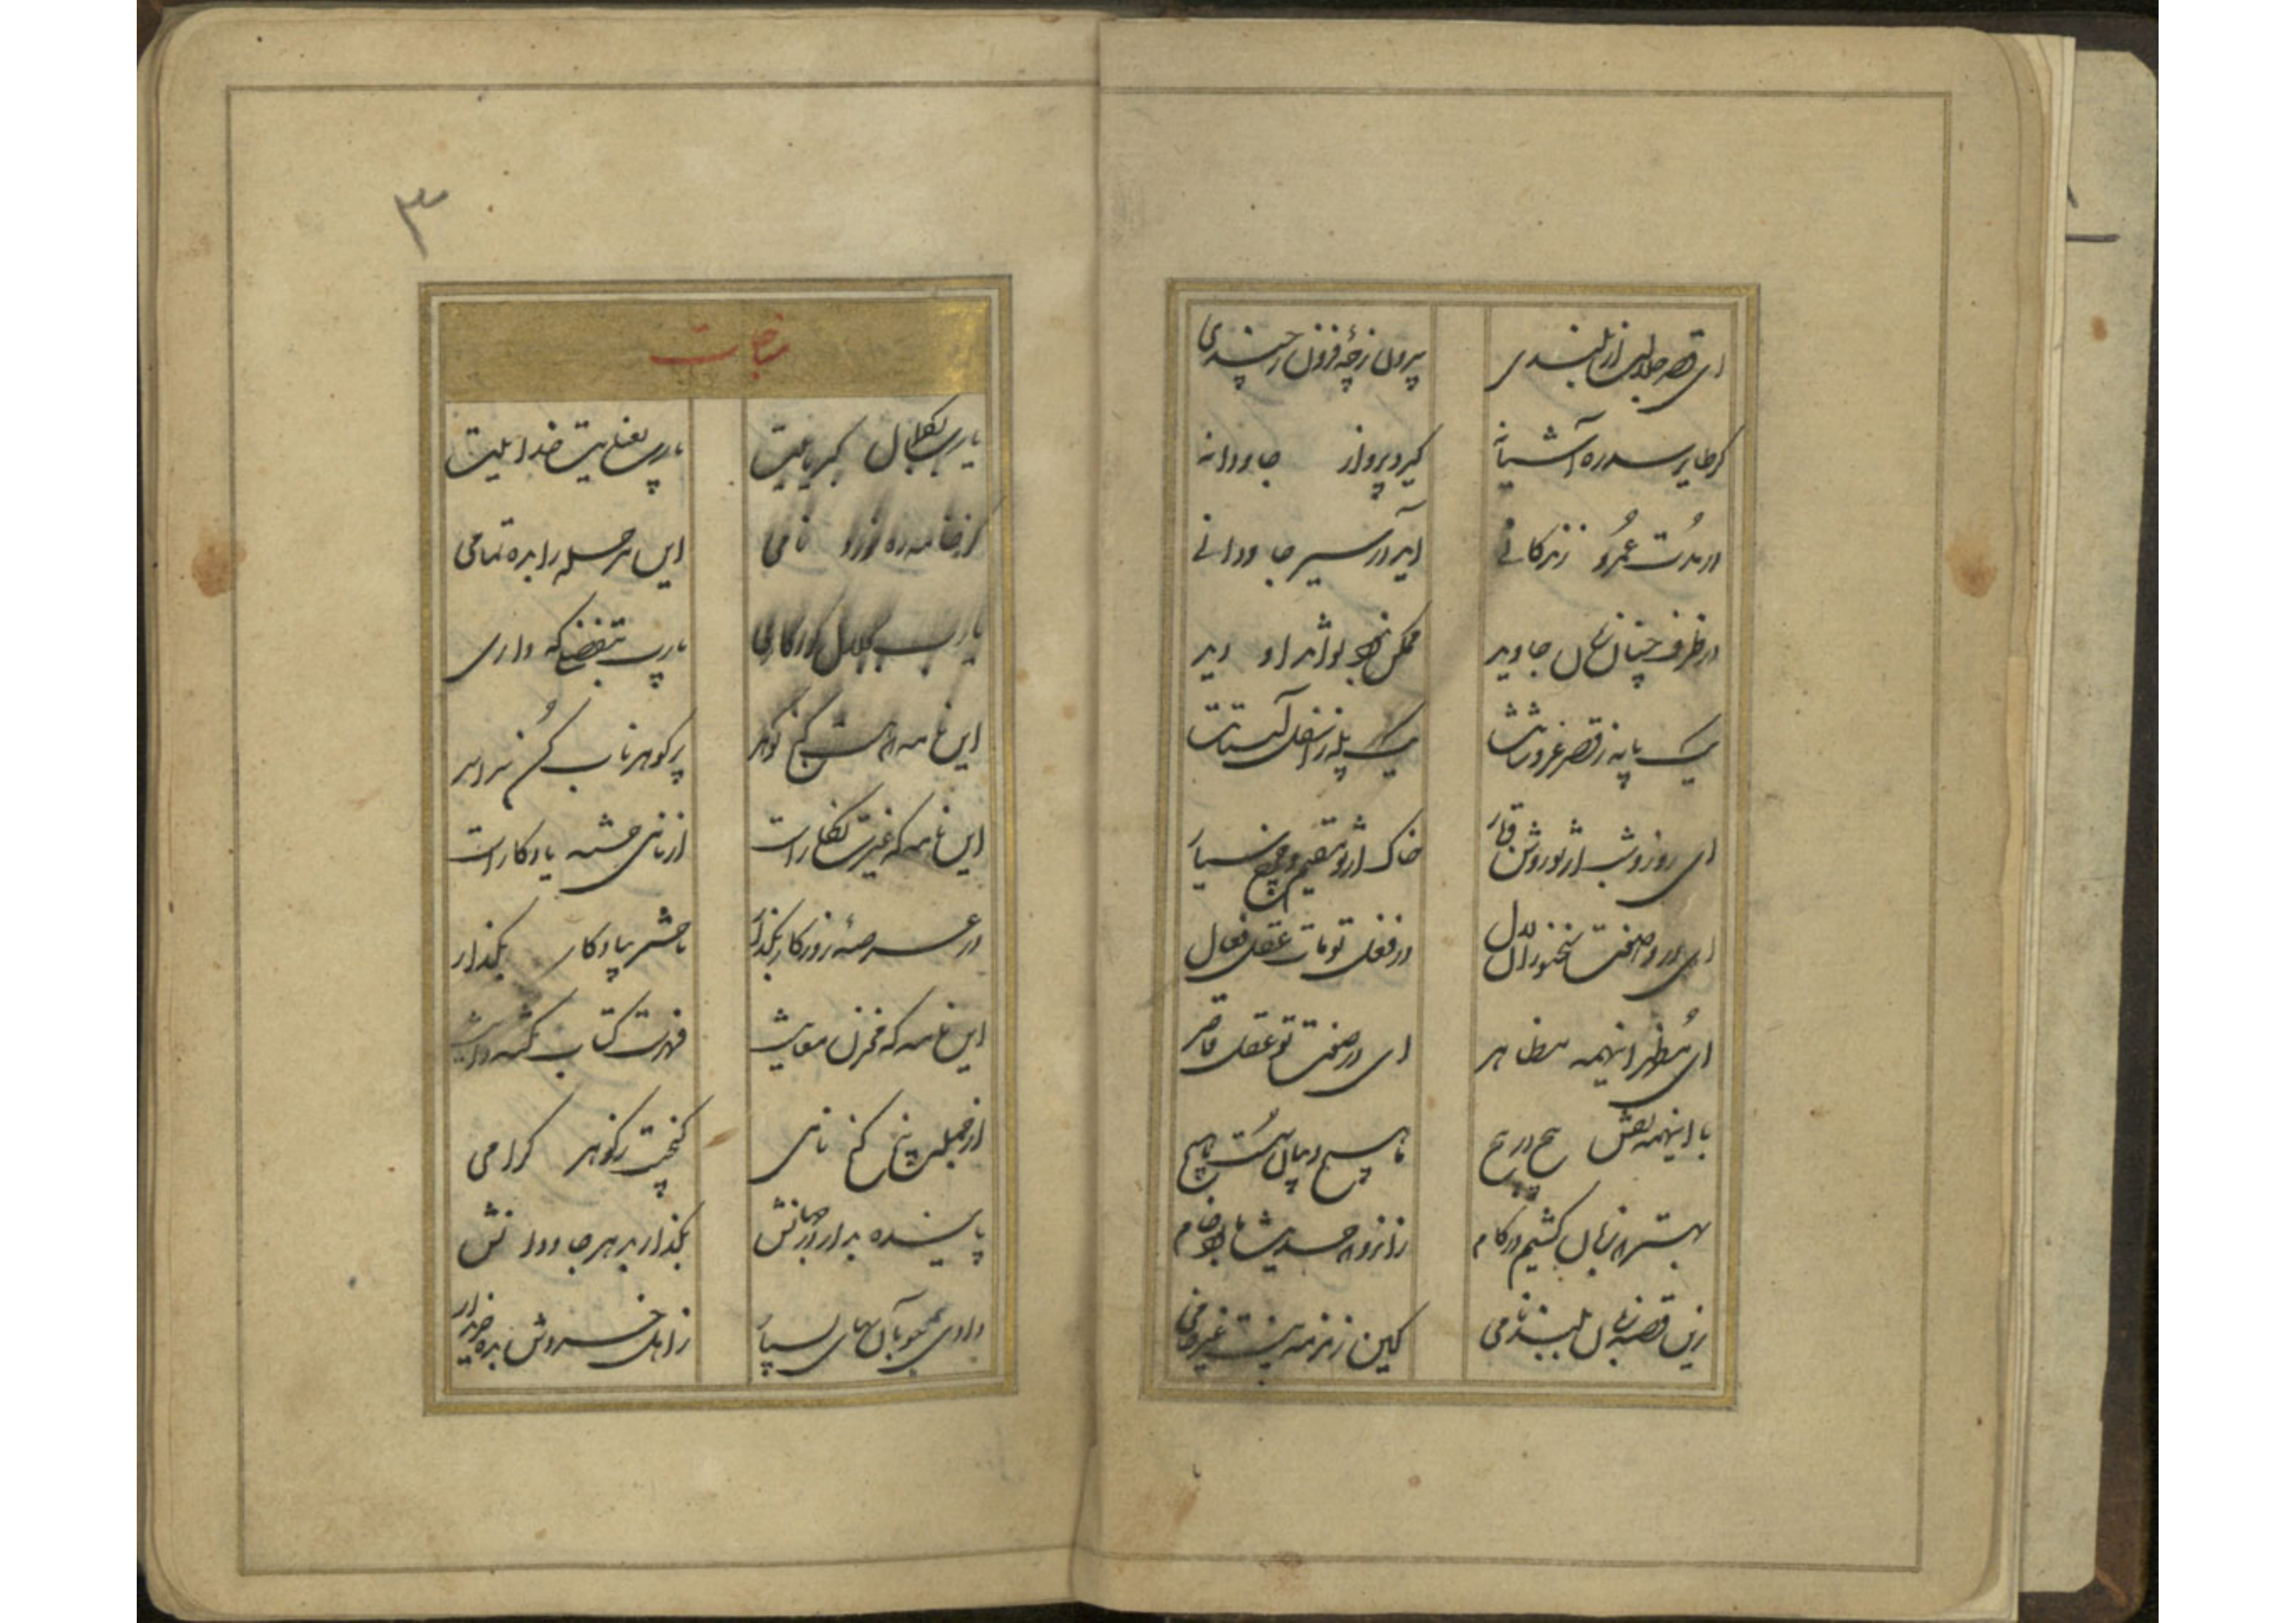 ای قصر جلالت از بلندی بیرون ز چه و فزون ز چندی
گر طایر سدره آشیانه گیرد پرواز جاودانه
در مدت عمر و زندگانی آید در سیر جاودانی
در طرف چنان جاوید ممکن نبود تواند او دید
یک پایه ز قصر عز و شانت یک پله ز اسفل آستانت
ای روز و شب از تو روشن و تار خاک از تو مقیم و چرخ سیار
ای در وصفت سخنوران لال در فعل تو مات عقل فعال
ای مظهر اینهمه مظاهر ای در صفت تو عقل قاصر
با اینهمه نقش هیچ در هیچ ما هیچ و بیان ماست هیچ
بهتر که زبان کشیم در کام زانرو که حدیث ما بود خام
زین قصه زبان بلند نامی کین زمزمه نیست غیر خامی
۳
مناجات
یارب بکمال کبریائیت یارب بعنایت خدائیت
کز خامه ده نامی این مرحله را بده تمامی
یارب بجلال کردگاری یارب بتفضلی که داری
این نامه که هست گنج گوهر پر گوهر ناب کن سراسر
این نامه که غیرت نگار است از نامی خسته یادگار است
در عرصه روزگار بگذار تا حشر بیادگار بگذار
این نامه که مخزن معانیست فهرست کتاب نکته دانیست
از جمله پنج گنج نامی گنجیست پر گوهر گرامی
پاینده بدار در جهانش بگذار بدهر جاودانش
دادی چو بآن بهای بسیار ز اهل خردش بده خریدار